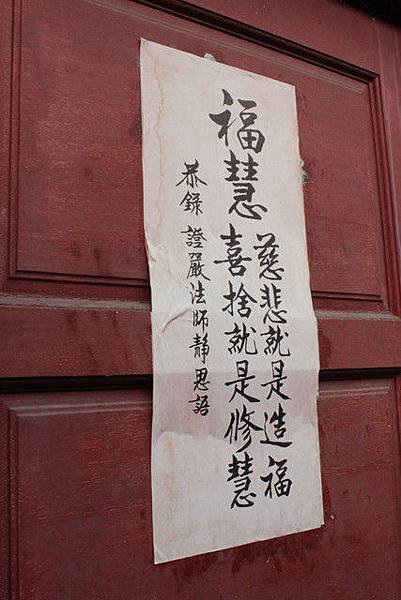 福慧
慈悲就是造福
喜捨就是修慧
恭錄 證嚴法師靜思語